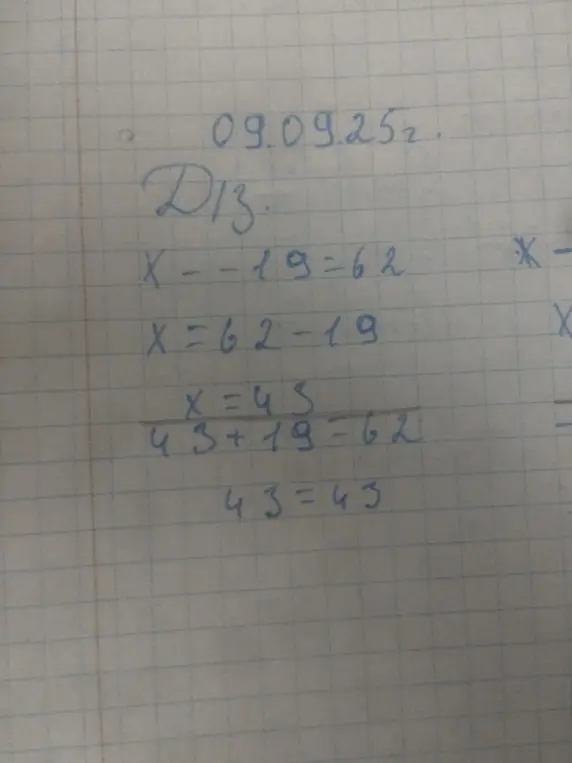 09.09.25г.
Д/з.
x - - 19 = 62
x = 62 - 19
x = 43
43 + 19 = 62
43 = 43
x -
x